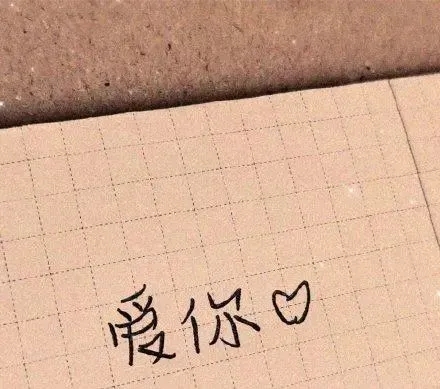 爱你♡